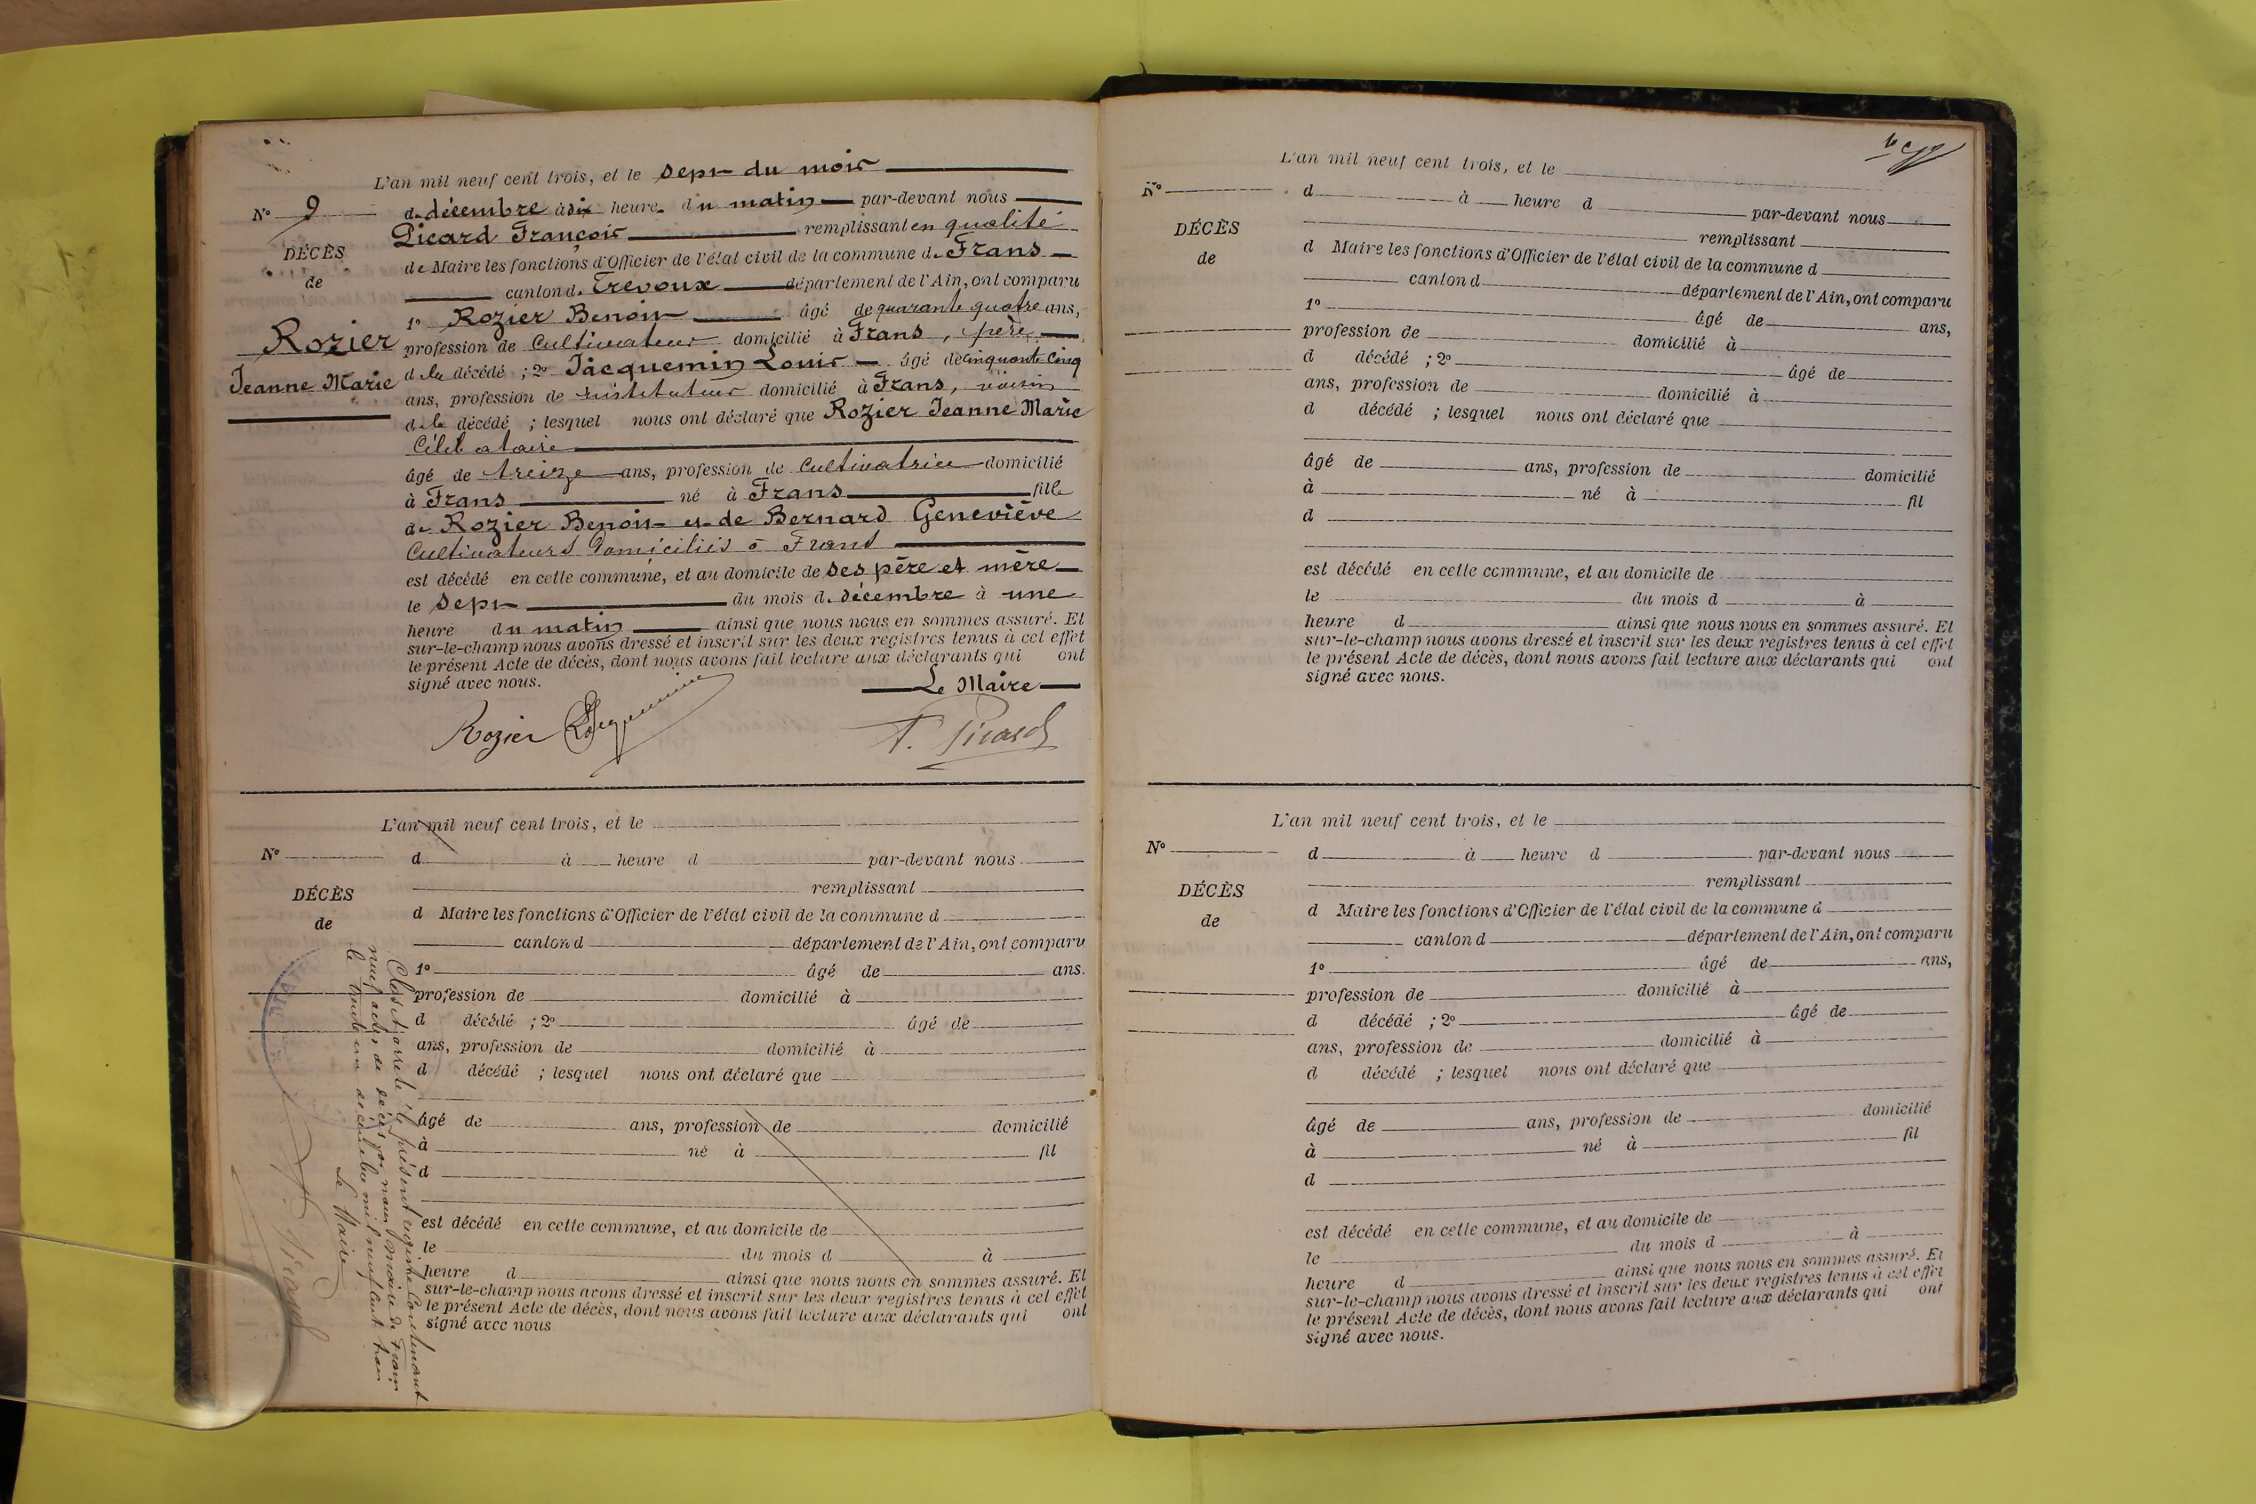 L'an mil neuf cent trois, et le sept du mois
N° 9
de décembre à dix heures du matin par-devant nous
Picard François remplissant en qualité
DÉCÈS
de Maire les fonctions d'Officier de l'état civil de la commune de Frans
de
canton de Trévoux département de l'Ain, ont comparu
1° Rozier Benoit âgé de quarante quatre ans,
Rozier
profession de Cultivateur domicilié à Frans, père
Jeanne Marie
de la décédé ; 2° Jacquemin Louis âgé de cinquante cinq
ans, profession de instituteur domicilié à Frans, voisin
de la décédé ; lesquel nous ont déclaré que Rozier Jeanne Marie
Célibataire
âgé de treize ans, profession de Cultivatrice domicilié
à Frans né à Frans fille
de Rozier Benoit et de Bernard Geneviève
Cultivateurs domiciliés à Frans
est décédé en cette commune, et au domicile de ses père et mère
le sept du mois de décembre à une
heure du matin ainsi que nous nous en sommes assuré. Et
sur-le-champ nous avons dressé et inscrit sur les deux registres tenus à cet effet
le présent Acte de décès, dont nous avons fait lecture aux déclarants qui ont
signé avec nous.
Le Maire
Rozier Jacquemin F. Picard
L'an mil neuf cent trois, et le
N°
d à heure d par-devant nous
remplissant
DÉCÈS
d Maire les fonctions d'Officier de l'état civil de la commune d
de
canton d département de l'Ain, ont comparu
1° âgé de ans.
profession de domicilié à
d décédé ; 2° âgé de
ans, profession de domicilié à
d décédé ; lesquel nous ont déclaré que
âgé de ans, profession de domicilié
à né à fil
d
est décédé en cette commune, et au domicile de
le du mois d à
heure d ainsi que nous nous en sommes assuré. Et
sur-le-champ nous avons dressé et inscrit sur les deux registres tenus à cet effet
le présent Acte de décès, dont nous avons fait lecture aux déclarants qui ont
signé avec nous
Clos et arrêté le présent registre Contenant
neuf actes de décès par nous Maire de Frans
le trente un décembre mil neuf cent trois
Le Maire
F. Picard
L'an mil neuf cent trois, et le
N°
d à heure d par-devant nous
remplissant
DÉCÈS
d Maire les fonctions d'Officier de l'état civil de la commune d
de
canton d département de l'Ain, ont comparu
1° âgé de ans,
profession de domicilié à
d décédé ; 2° âgé de
ans, profession de domicilié à
d décédé ; lesquel nous ont déclaré que
âgé de ans, profession de domicilié
à né à fil
d
est décédé en cette commune, et au domicile de
le du mois d à
heure d ainsi que nous nous en sommes assuré. Et
sur-le-champ nous avons dressé et inscrit sur les deux registres tenus à cet effet
le présent Acte de décès, dont nous avons fait lecture aux déclarants qui ont
signé avec nous.
L'an mil neuf cent trois, et le
N°
d à heure d par-devant nous
remplissant
DÉCÈS
d Maire les fonctions d'Officier de l'état civil de la commune d
de
canton d département de l'Ain, ont comparu
1° âgé de ans,
profession de domicilié à
d décédé ; 2° âgé de
ans, profession de domicilié à
d décédé ; lesquel nous ont déclaré que
âgé de ans, profession de domicilié
à né à fil
d
est décédé en cette commune, et au domicile de
le du mois d à
heure d ainsi que nous nous en sommes assuré. Et
sur-le-champ nous avons dressé et inscrit sur les deux registres tenus à cet effet
le présent Acte de décès, dont nous avons fait lecture aux déclarants qui ont
signé avec nous.